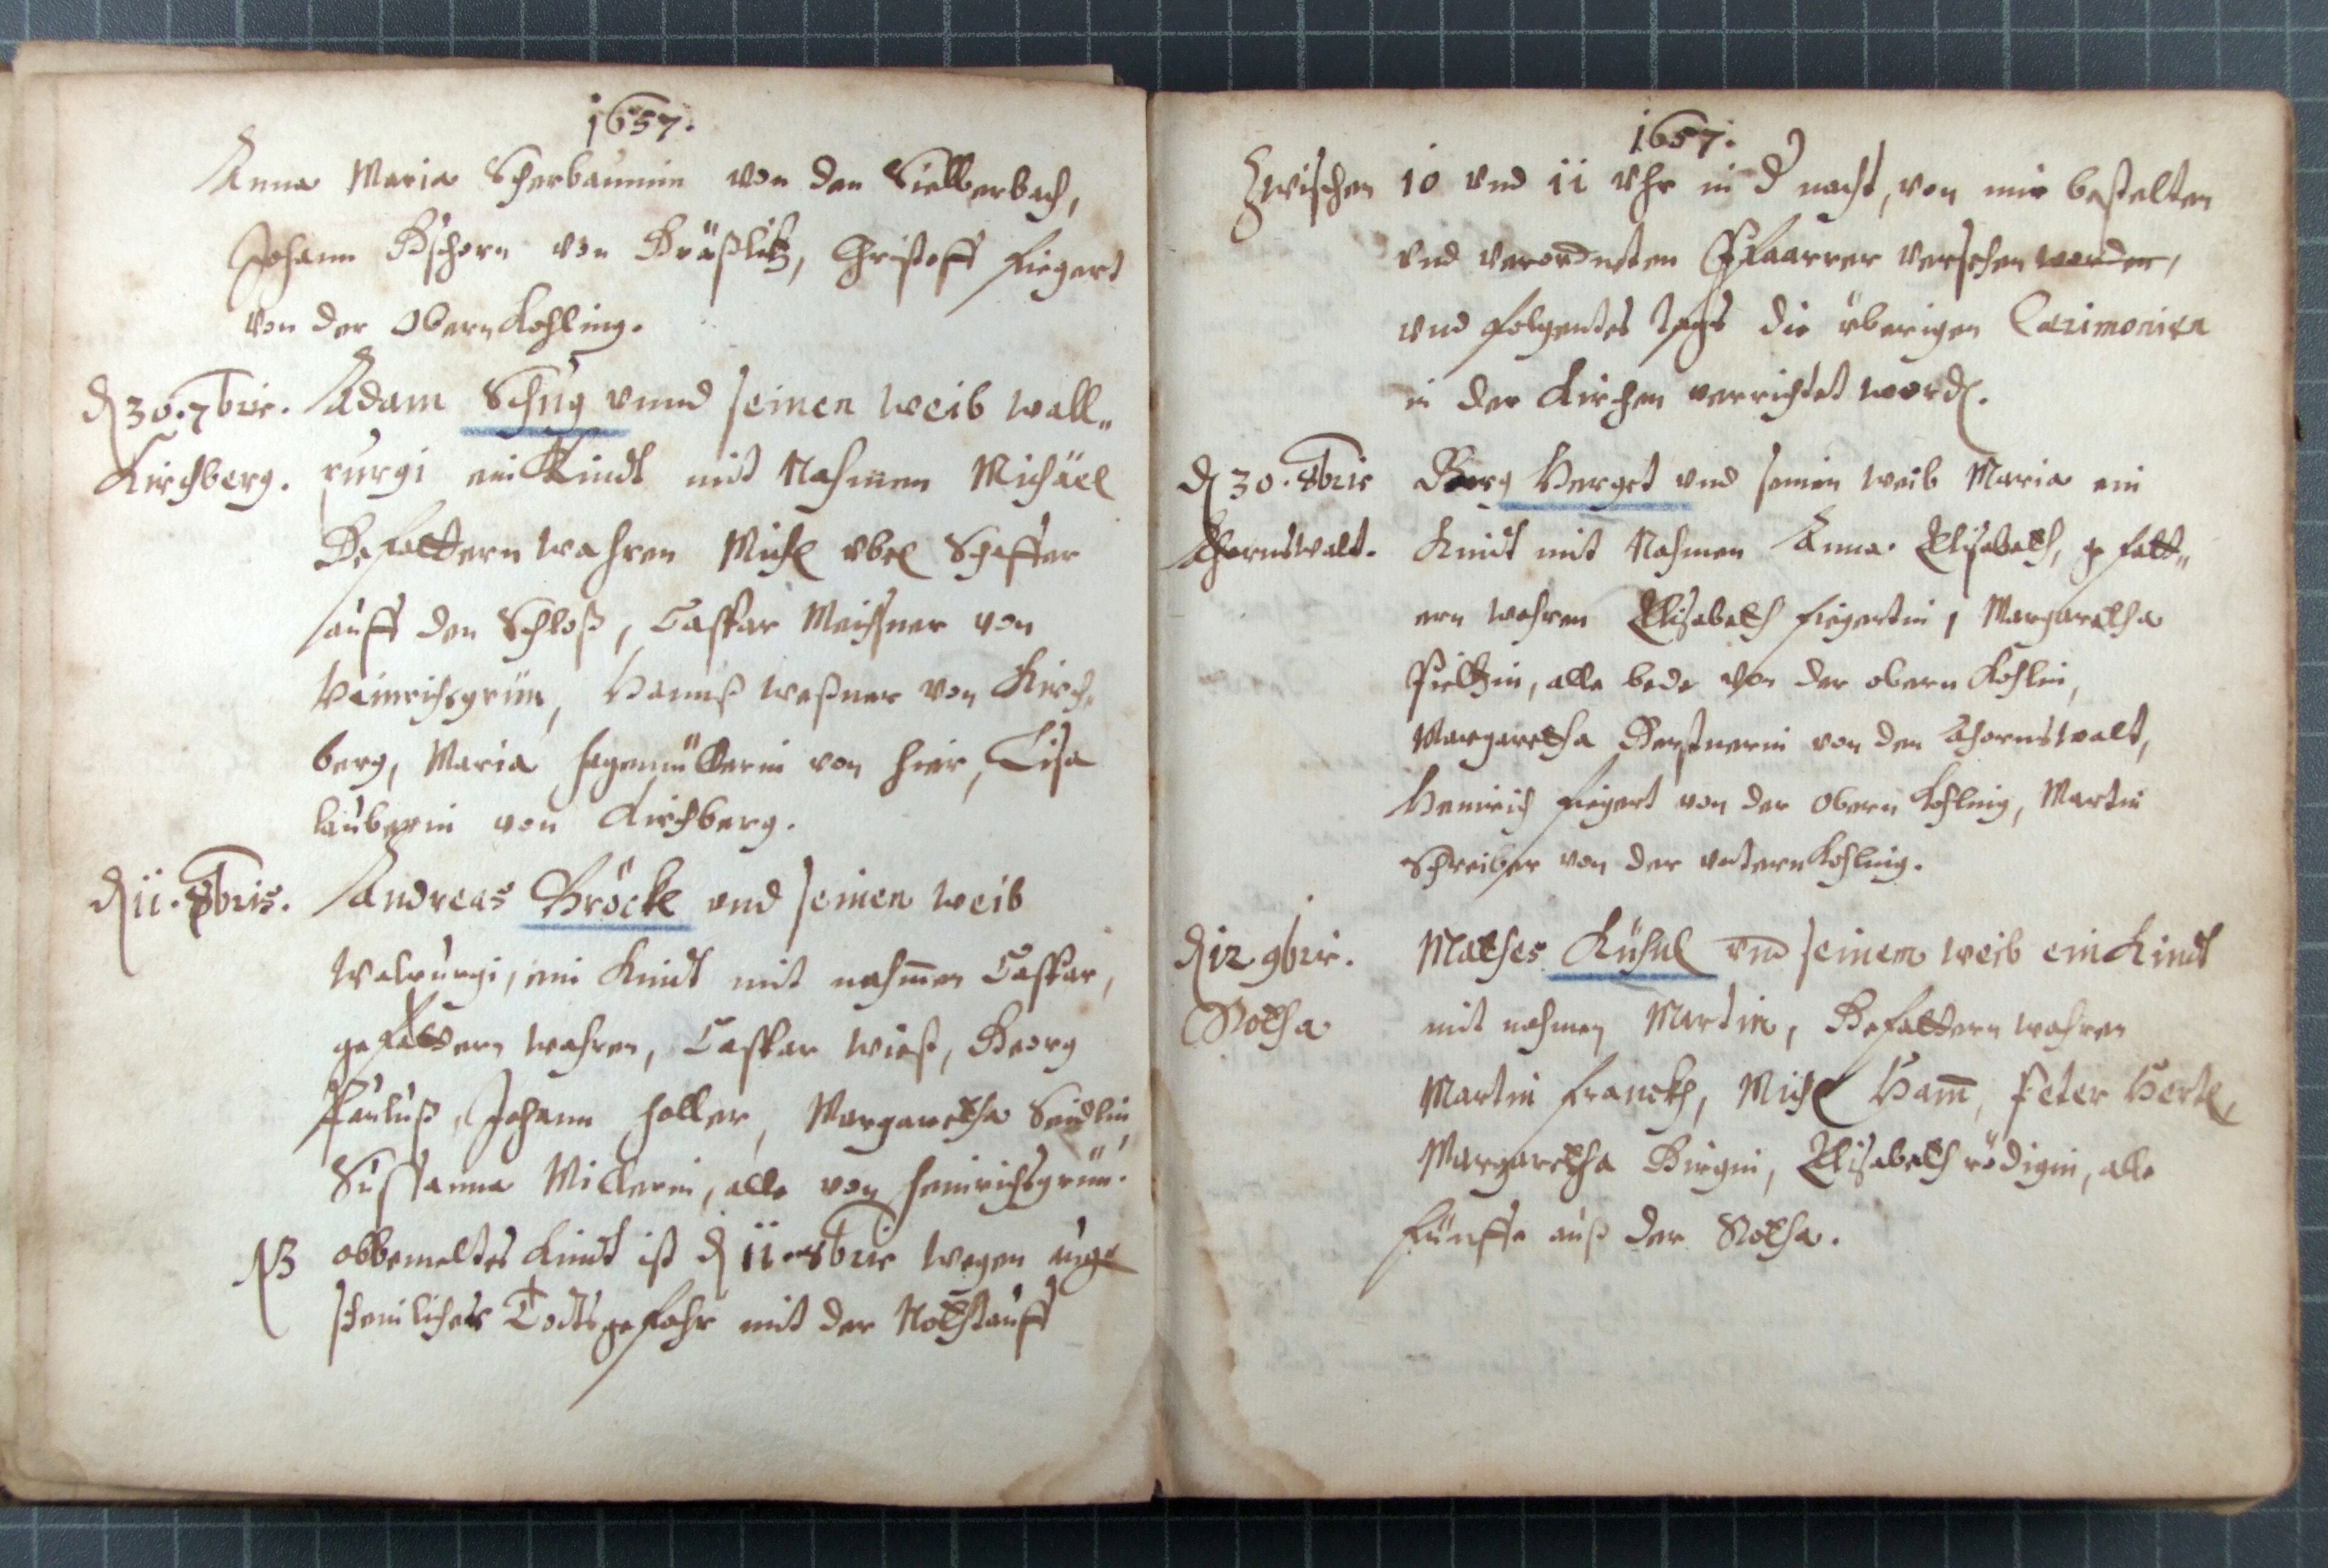 1657.
Anna Maria Scherbaumin von den Sielberbach,
Johann Bschorn von Gräßlitz, Christoff Fiegert
von der Obern Kohling.
D 30. 7bris. Adam Schug vnnd seinen Weib Wall„
Kirchberg. purgi ein Kindt mit Nahmen Michäel
Gefattern wahren Michl vbel Schaffer
auff den Schloß, Caspar Meichsner von
Heinrichsgrün, Hannß Meßner von Kirch„
berg, Maria Hagenmüllerin von hier, Lisa
lauberin von Kirchberg.
D 11. 8bris. Andreas Bröckl vnd seinen Weib
Walpurgi, ein Kindt mit nahmen Caspar,
gefattern wahren, Caspar Wieß, Georg
Pauluß, Johann Holler, Margaretha Seidlin
Susanna Millerin, alle von Heinrichsgrün.
NB obbemeltes Kindt ist D 11. 8bris wegen auge
scheinlicher Todtsgefahr mit der Nothtauff
1657.
Zwischen 10 vnd 11 vhr in d nacht, von mir bestelten
vnd verordneten Pfaarrer versehen worden,
vnd folgentes tags die überigen Cærimonien
in der Kirchen verrichtet word.
D 30. 8bris Georg Herget vnd seinen Weib Maria ein
Ahornswalt. Kindt mit Nahmen Anna Elisabeth, gefatt„
ern wahren Elisabeth Fiegertin, Margaretha
Pieltzin, alle bede von der obern Kohlin,
Margaretha Gerstnerin von den Ahornswalt,
Heinrich Fiegert von der Obern Kohling, Martin
Schreiber von der vntern Kohling.
D 12 9bris. Mathes Kühnl vnd seinem Weib ein Kindt
Rotha mit nahmen Martin, Gefattern wahren
Martin Franckh, Michl Ham̄, Peter Hertl,
Margaretha Birgin, Elisabeth rödigin, alle
fünffe auß der Rotha.